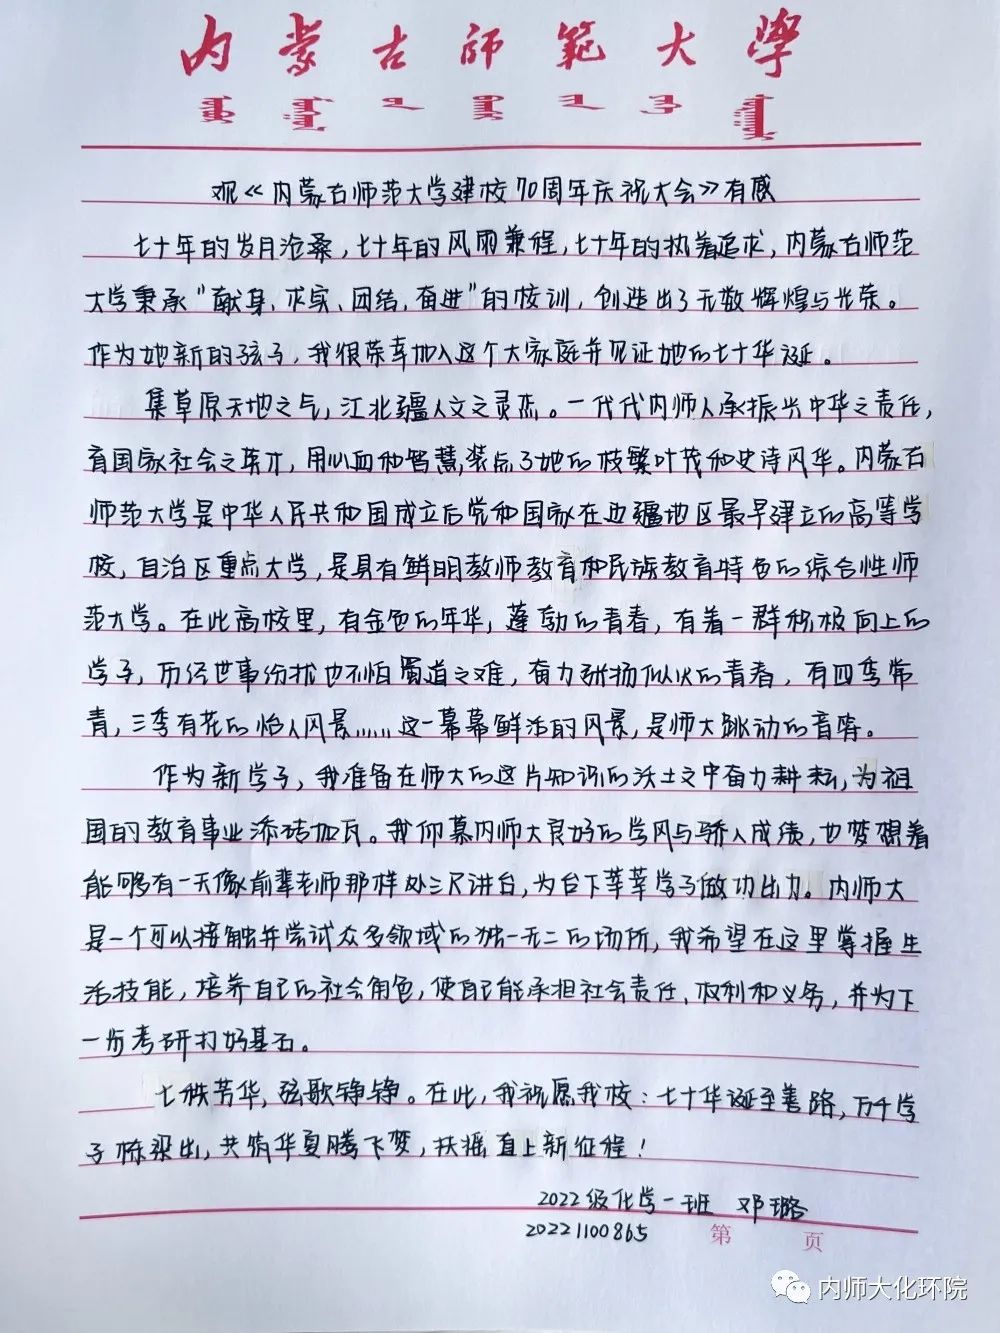 内蒙古师范大学
观《内蒙古师范大学建校70周年庆祝大会》有感
七十年的岁月沧桑，七十年的风雨兼程，七十年的执着追求，内蒙古师范
大学秉承“献身、求实、团结，奋进”的校训，创造出了无数辉煌与光荣。
作为她新的孩子，我很荣幸加入这个大家庭并见证她的七十华诞。
集草原天地之气，汇北疆人文之灵杰。一代代内师人承振兴中华之责任，
育国家社会之栋才，用心血和智慧，装点了她的枝繁叶茂和史诗风华。内蒙古
师范大学是中华人民共和国成立后党和国家在边疆地区最早建立的高等学
校，自治区重点大学，是具有鲜明教师教育和民族教育特色的综合性师
范大学。在此高校里，有金色的年华，蓬勃的青春，有着一群积极向上的
学子，历经世事纷扰也不怕蜀道之难，奋力张扬似火的青春，有四季常
青，三季有花的怡人风景……这一幕幕鲜活的风景，是师大跳动的音符。
作为新学子，我准备在师大的这片知识的沃土之中奋力耕耘，为祖
国的教育事业添砖加瓦。我仰慕内师大良好的学风与骄人成绩，也梦想着
能够有一天像前辈老师那样处三尺讲台，为台下莘莘学子做功出力。内师大
是一个可以接触并尝试众多领域的独一无二的场所，我希望在这里掌握生
活技能，培养自己的社会角色，使自己能承担社会责任、权利和义务，并为下
一步考研打好基石。
七秩芳华，弦歌铮铮。在此，我祝愿我校：七十华诞至善路，万千学
子栋梁出，共筑华夏腾飞梦，扶摇直上新征程！
2022级化学一班 邓璐
20221100865
第 页
内师大化环院